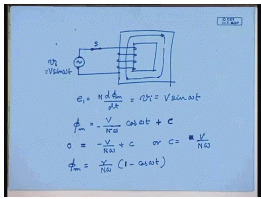 S
vi
= V sin ωt
e₁ = N dφm/dt = vi = V sin ωt
φm = - V/Nω cos ωt + c
0 = - V/Nω + c or c = V/Nω
φm = V/Nω (1 - cos ωt)